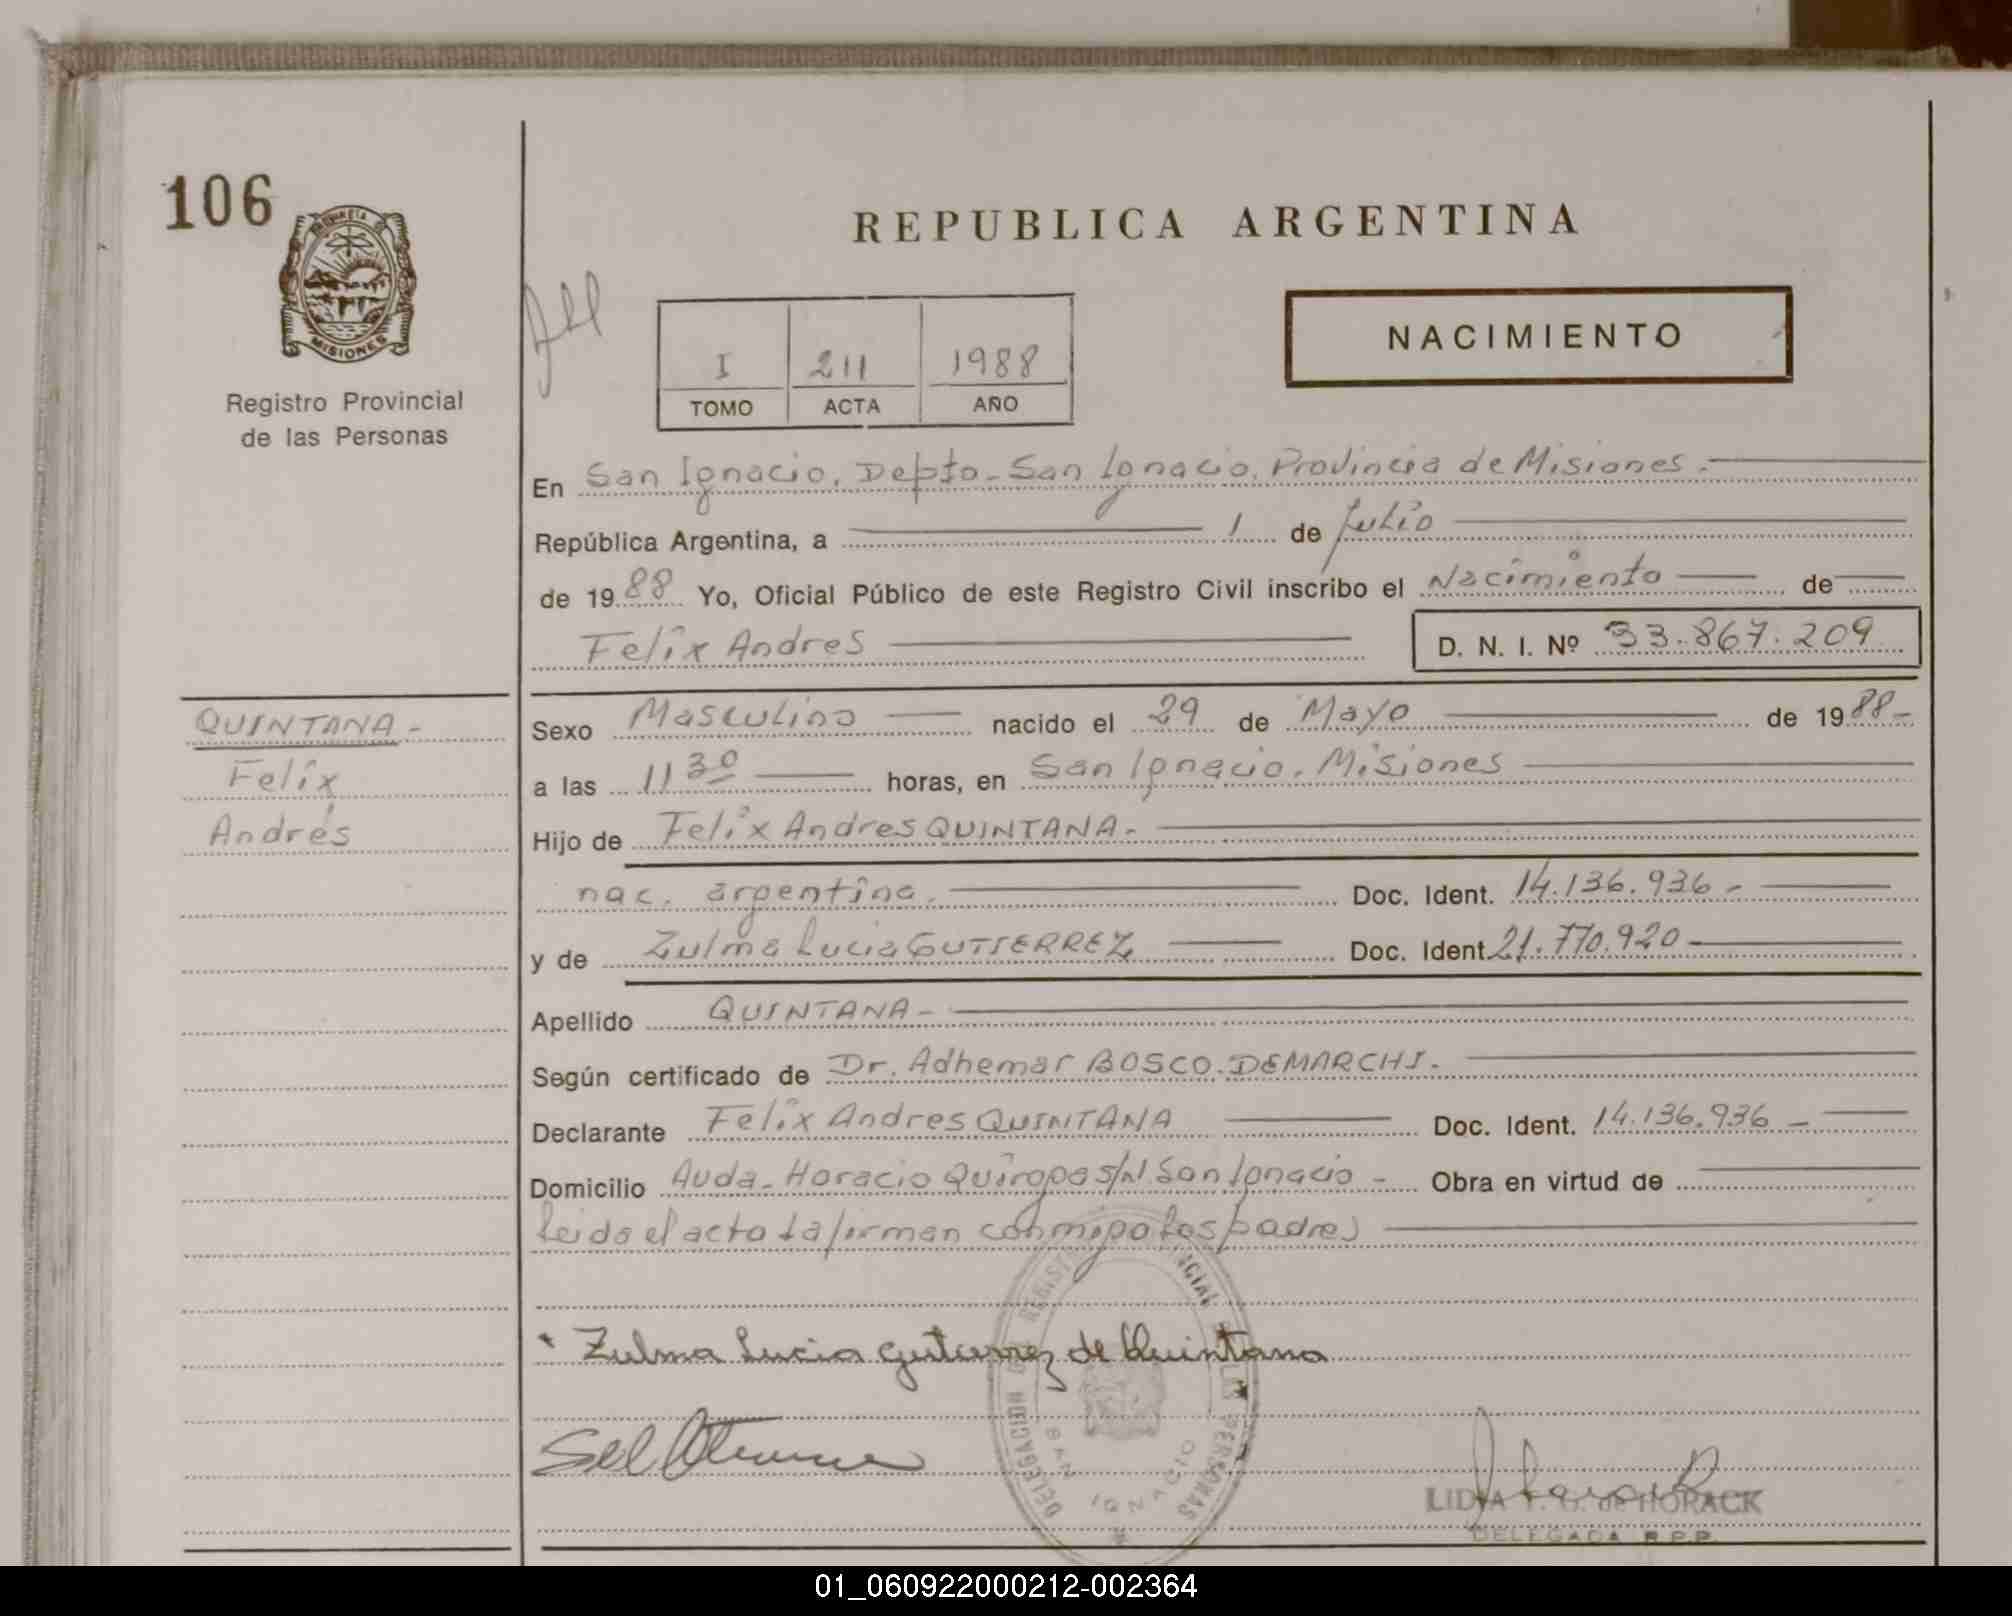 106
PROVINCIA
MISIONES
Registro Provincial
de las Personas
REPUBLICA ARGENTINA
I 211 1988
TOMO ACTA AÑO
NACIMIENTO
En San Ignacio, Depto. San Ignacio, Provincia de Misiones.
República Argentina, a 1 de Julio
de 1988 Yo, Oficial Público de este Registro Civil inscribo el Nacimiento de
Felix Andres D. N. I. Nº 33.867.209
QUINTANA -
Felix
Andrés
Sexo Masculino nacido el 29 de Mayo de 1988-
a las 11 30 horas, en San Ignacio, Misiones
Hijo de Felix Andres QUINTANA.-
nac. argentina. Doc. Ident. 14.136.936-
y de Zulma Lucia GUTIERREZ Doc. Ident. 21.770.920
Apellido QUINTANA-
Según certificado de Dr. Adhemar BOSCO. DEMARCHI.
Declarante Felix Andres QUINTANA Doc. Ident. 14.136.936-
Domicilio Avda. Horacio Quiroga s/N. San Ignacio - Obra en virtud de
Leida el acta la firman conmigo los padres
Zulma Lucia Gutierrez de Quintana
DELEGACION SAN IGNACIO
LIDIA F. G. de HORACK
DELEGADA R.P.P.
01_060922000212-002364